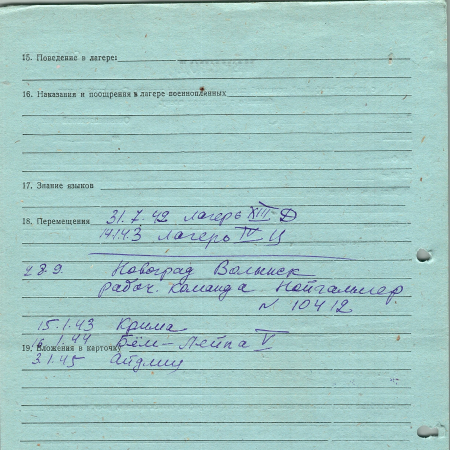 15. Поведение в лагере:
16. Наказания и поощрения в лагере военнопленных
17. Знание языков
18. Перемещения 31.7.42 лагерь XIII-Д
14.1.43 лагерь IV Ц
28.9. Новоград Волынск
рабоч. команда Нойгаммер
N 10412
15.1.43 Крима
1.44 Бём-Лейпа V
19. Вложения в карточку
3.1.45 Айдлиц